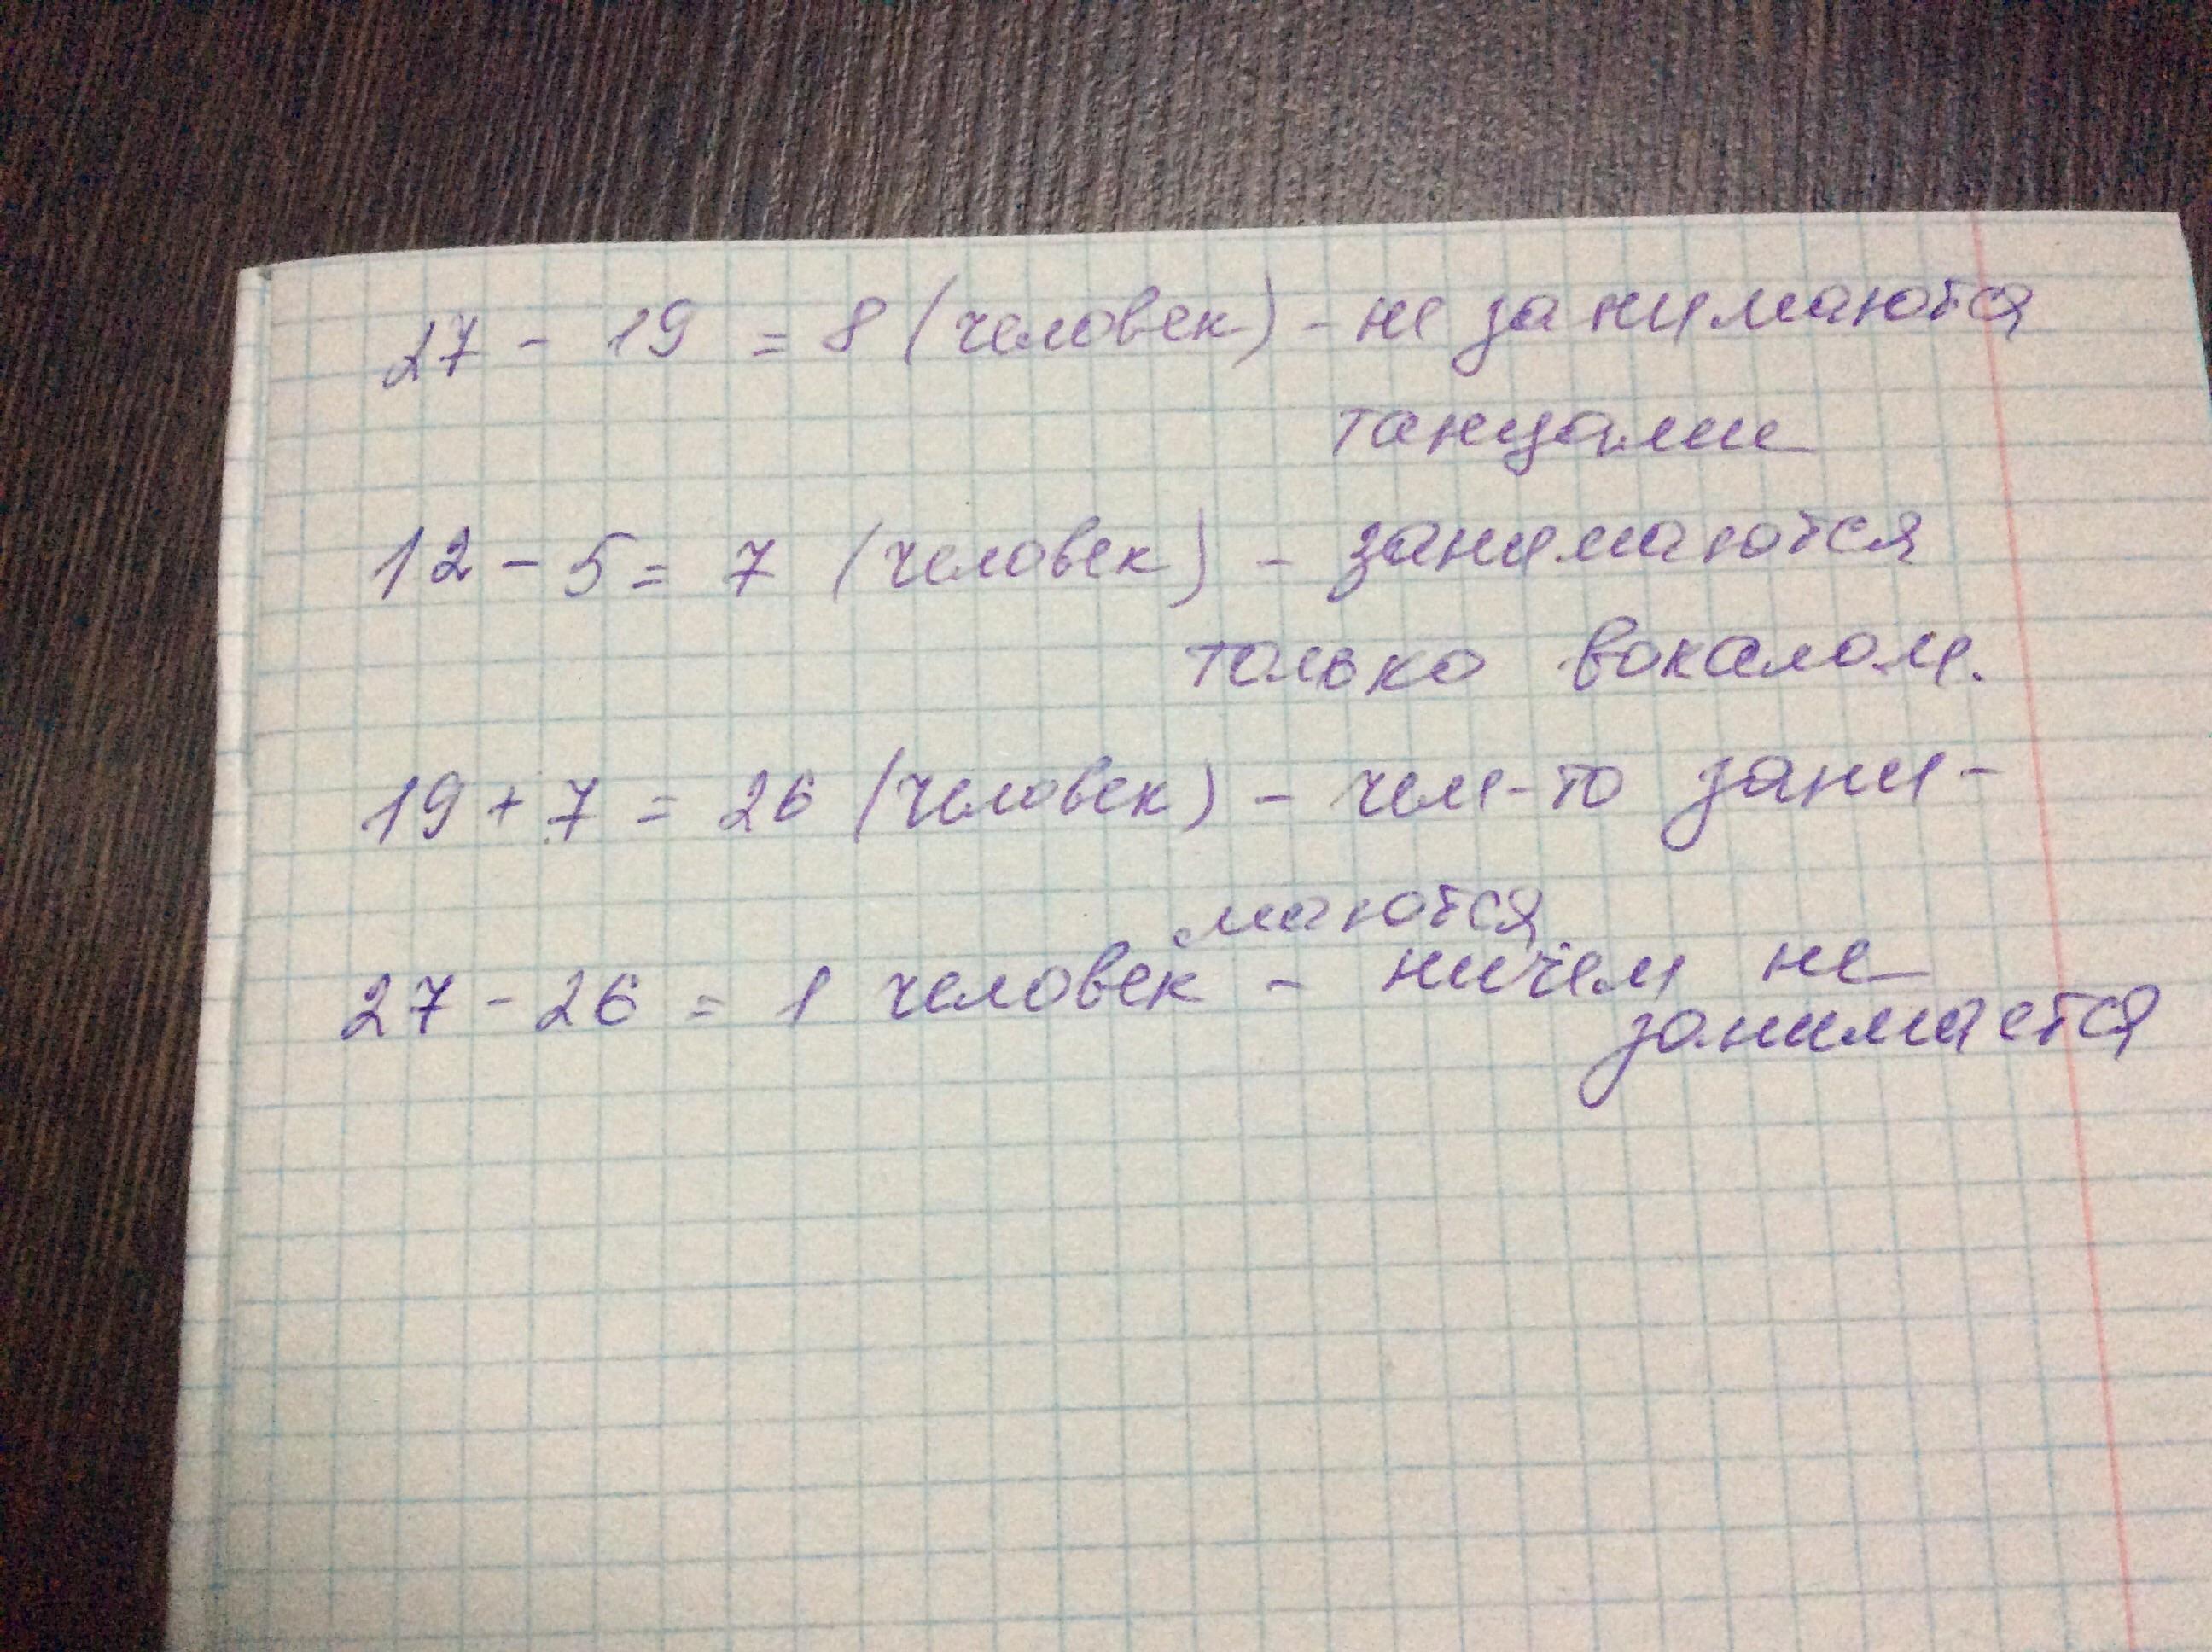 27 - 19 = 8 (человек) - не занимаются
танцами
12 - 5 = 7 (человек) - занимаются
только вокалом.
19 + 7 = 26 (человек) - чем-то зани-
маются
27 - 26 = 1 человек - ничем не
занимается